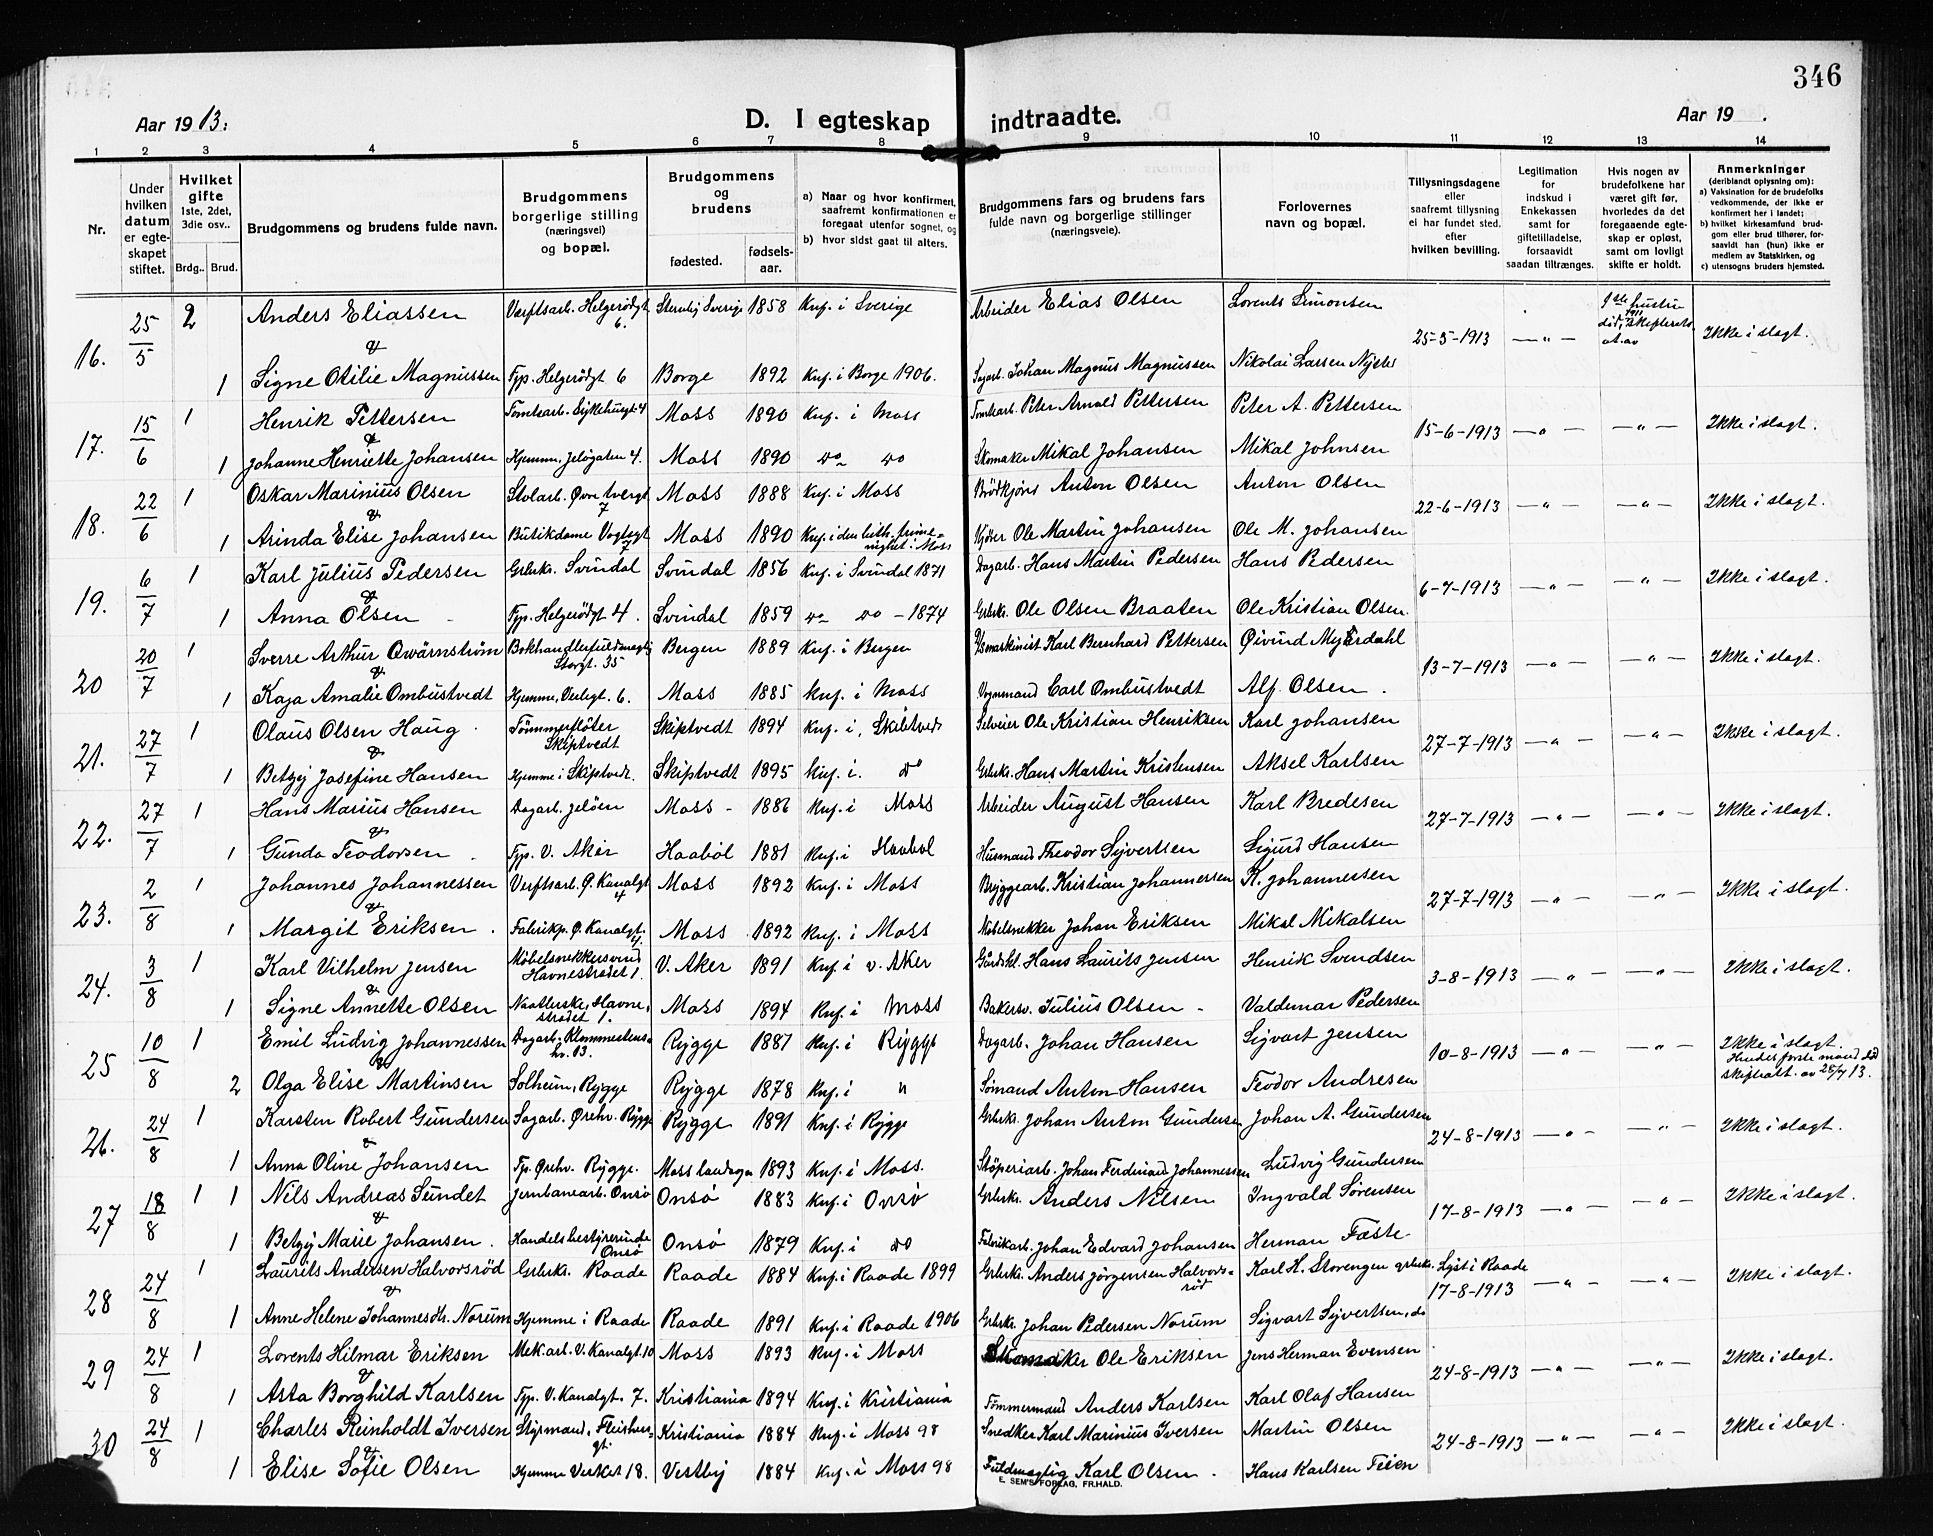 346
Aar 1913:
D. I egteskap indtraadte.
Aar 19 .
1 2 3 4 5 6 7 8 9 10 11 12 13 14
Nr.
Under hvilken datum er egteskapet stiftet.
Hvilket gifte 1ste, 2det, 3die osv..
Brdg.. Brud.
Brudgommens og brudens fulde navn.
Brudgommens borgerlige stilling (næringsvei) og bopæl.
Brudgommens og brudens
fødested. fødsels-aar.
a) Naar og hvor konfirmert, saafremt konfirmationen er foregaat utenfor sognet, og
b) hvor sidst gaat til alters.
Brudgommens fars og brudens fars fulde navn og borgerlige stillinger (næringsveie).
Forlovernes navn og bopæl.
Tillysningsdagene eller saafremt tillysning ei har fundet sted, efter hvilken bevilling.
Legitimation for indskud i Enkekassen samt for giftetilladelse, forsaavidt saadan tiltrænges.
Hvis nogen av brudefolkene har været gift før, hvorledes da det foregaaende egteskap er opløst, samt om lovligt skifte er holdt.
Anmerkninger (deriblandt oplysning om):
a) Vaksination for de brudefolks vedkommende, der ikke er konfirmert her i landet;
b) hvilket kirkesamfund brudgom eller brud tilhører, forsaavidt han (hun) ikke er medlem av Statskirken, og
c) utensogns bruders hjemsted.
16. 25/5 2 Anders Eliassen Værftsarb. Helgerødgt 6. Sverige 1858 Knf. i Sverige Arbeider Elias Olsen Lorents Simonsen 25-5-1913 — " — 1ste hustru død 1911, skifteret Ikke i slagt.
& 1 Signe Otilie Magnussen Fyp. Helgerødgt 6 Borge 1892 Knf. i Borge 1906. Sagarb. Johan Magnus Magnussen Nikolai Larsen
17. 15/6 1 Henrik Pettersen Tomtearb. Sykehusgt. 4 Moss 1890 Knf. i Moss Tomtearb. Peter Arnold Pettersen Peter A. Pettersen 15-6-1913 — " — — " — Ikke i slagt.
& 1 Johanne Henriette Johansen Hjemme, Jeløgaten 4. Moss 1890 do do Skomaker Mikal Johansen Mikal Johnsen
18. 22/6 1 Oskar Marinius Olsen Stolarb. Øvre tvergt 7 Moss 1888 Knf. i Moss Brødkjører Anton Olsen Anton Olsen 22-6-1913 — " — — " — Ikke i slagt.
& 1 Arinda Elise Johansen Butikdame Vogtsgt 7 Moss 1890 Knf. i den luth. frimenighet i Moss Ole Martin Johansen Ole M. Johansen
19. 6/7 1 Karl Julius Pedersen Grbrk. Svindal Svindal 1856 Knf. i Svindal 1871 Dagarb. Hans Martin Pedersen Hans Pedersen 6-7-1913 — " — — " — Ikke i slagt.
& 1 Anna Olsen Fyp. Helgerødgt 4. Svindal 1859 do do - 1874 Grbrk. Ole Olsen Braaten Ole Kristian Olsen.
20 20/7 1 Sverre Arthur Qwärnström Bokhandlerfuldmægtig Storgt. 35 Bergen 1889 Knf. i Bergen Karl Bernhard Pettersen Øivind Myhrdahl 13-7-1913 — " — — " — Ikke i slagt.
& 1 Kaja Amalie Ombustvedt Hjemme, Verlegt. 6. Moss 1885 Knf. i Moss Vognmand Carl Ombustvedt Alf Olsen.
21. 27/7 1 Olaus Olsen Haug. Tømmerfløter Skiptvedt Skiptvedt 1894 Knf. i Skibtvedt Selveier Ole Kristian Henriksen Karl Johansen 27-7-1913 — " — — " — Ikke i slagt.
& 1 Betzy Josefine Hansen Hjemme i Skiptvedt. Skiptvedt 1895 Knf. i. do Grbrk. Hans Martin Kristensen Aksel Karlsen
22. 27/7 1 Hans Marius Hansen Dagarb. Jeløen Moss - 1886 Knf. i Moss Arbeider August Hansen Karl Bredesen 27-7-1913 — " — — " — Ikke i slagt.
& 1 Gunda Teodorsen. Fyp. V. Aker Haabøl 1881 Knf. i Haabøl Husmand Theodor Syvertsen Sigurd Hansen
23. 2/8 1 Johannes Johannessen Verftsarb. Ø. Kanalgt 4 Moss 1892 Knf. i Moss Bryggearb. Kristian Johannessen K. Johannessen 27-7-1913 — " — — " — Ikke i slagt.
& 1 Margit Eriksen. Fabrikp. Ø. Kanalgt. 4. Moss 1892 Knf. i Moss Møbelsnekker Johan Eriksen Mikal Mikalsen
24. 3/8 1 Karl Vilhelm Jensen Møbelsnekkersvend Havnestrædet 1. V. Aker 1891 Knf. i V. Aker Hans Laurits Jensen Henrik Svendsen 3-8-1913 — " — — " — Ikke i slagt.
& 1 Signe Annette Olsen Naatlerske, Havnestrædet 1. Moss 1894 Knf. i Moss Bakersv. Julius Olsen - Valdemar Pedersen
25 10/8 1 Emil Ludvig Johannessen Dagarb. Klommestensbr. 13. Rygge 1887 Knf. i Rygge Dagarb. Johan Hansen Sigvart Jensen 10-8-1913 — " — — " — Ikke i slagt. Hendes første mand død skifteatt. av 28/7 13.
& 2 Olga Elise Martinsen Solheim, Rygge Rygge 1878 Knf. i " Sømand Anton Hansen Teodor Andresen
26. 24/8 1 Karsten Robert Gundersen Sagarb. Ørehv. Rygge Rygge 1891 Knf. i Rygge Grbrk. Johan Anton Gundersen Johan A. Gundersen 24-8-1913 — " — — " — Ikke i slagt.
& 1 Anna Oline Johansen Fp. Ørehv. Rygge. Moss landsogn 1893 Knf. i Moss. Støperiarb. Johan Ferdinand Johannessen Ludvig Gundersen
27 18/8 1 1 Nils Andreas Sundet Jernbanearb. Onsø Onsø 1883 Knf. i Onsø Grbrk. Anders Nilsen Ingvald Sørensen 17-8-1913 — " — — " — Ikke i slagt.
& 1 Betzy Marie Johansen. Handelsbestyrerinde Onsø Onsø 1879 Knf. i do Fabrikarb. Johan Edvard Johansen Herman Fæste
28 24/8 1 Laurits Andersen Halvorsrød Grbrk. Raade Raade 1884 Knf. i Raade 1899 Grbrk. Anders Jørgensen Halvorsrød Karl H. Storengen grbrk. Lyst i Raade 17-8-1913 — " — — " — Ikke i slagt.
& 1 Anne Helene Johannesdtr. Norum Hjemme i Raade Raade 1891 Knf. i Raade 1906 Grbrk. Johan Pedersen Norum Sigvart Syvertsen, do
29 24/8 1 Lorents Hilmar Eriksen Mek. arb. V. Kanalgt 10 Moss 1893 Knf. i Moss Skomaker Ole Eriksen Jens Herman Evensen 24-8-1913 — " — — " — Ikke i slagt.
& 1 Asta Borghild Karlsen Fyp. V. Kanalgt. 7. Kristiania 1894 Knf. i Kristiania Tømmermand Anders Karlsen Karl Olaf Hansen
30 24/8 1 Charles Reinholdt Iversen Styrmand, Kristiania 1884 Knf. i Moss 98 Snedker Karl Marinius Iversen Martin Olsen 24-8-1913 — " — — " — Ikke i slagt.
& 1 Elise Sofie Olsen Hjemme Verket 18. Vestby 1884 Knf. i Moss 98 Fuldmægtig Karl Olsen. Hans Karlsen Teien
E. SEM'S FORLAG, FR.HALD.